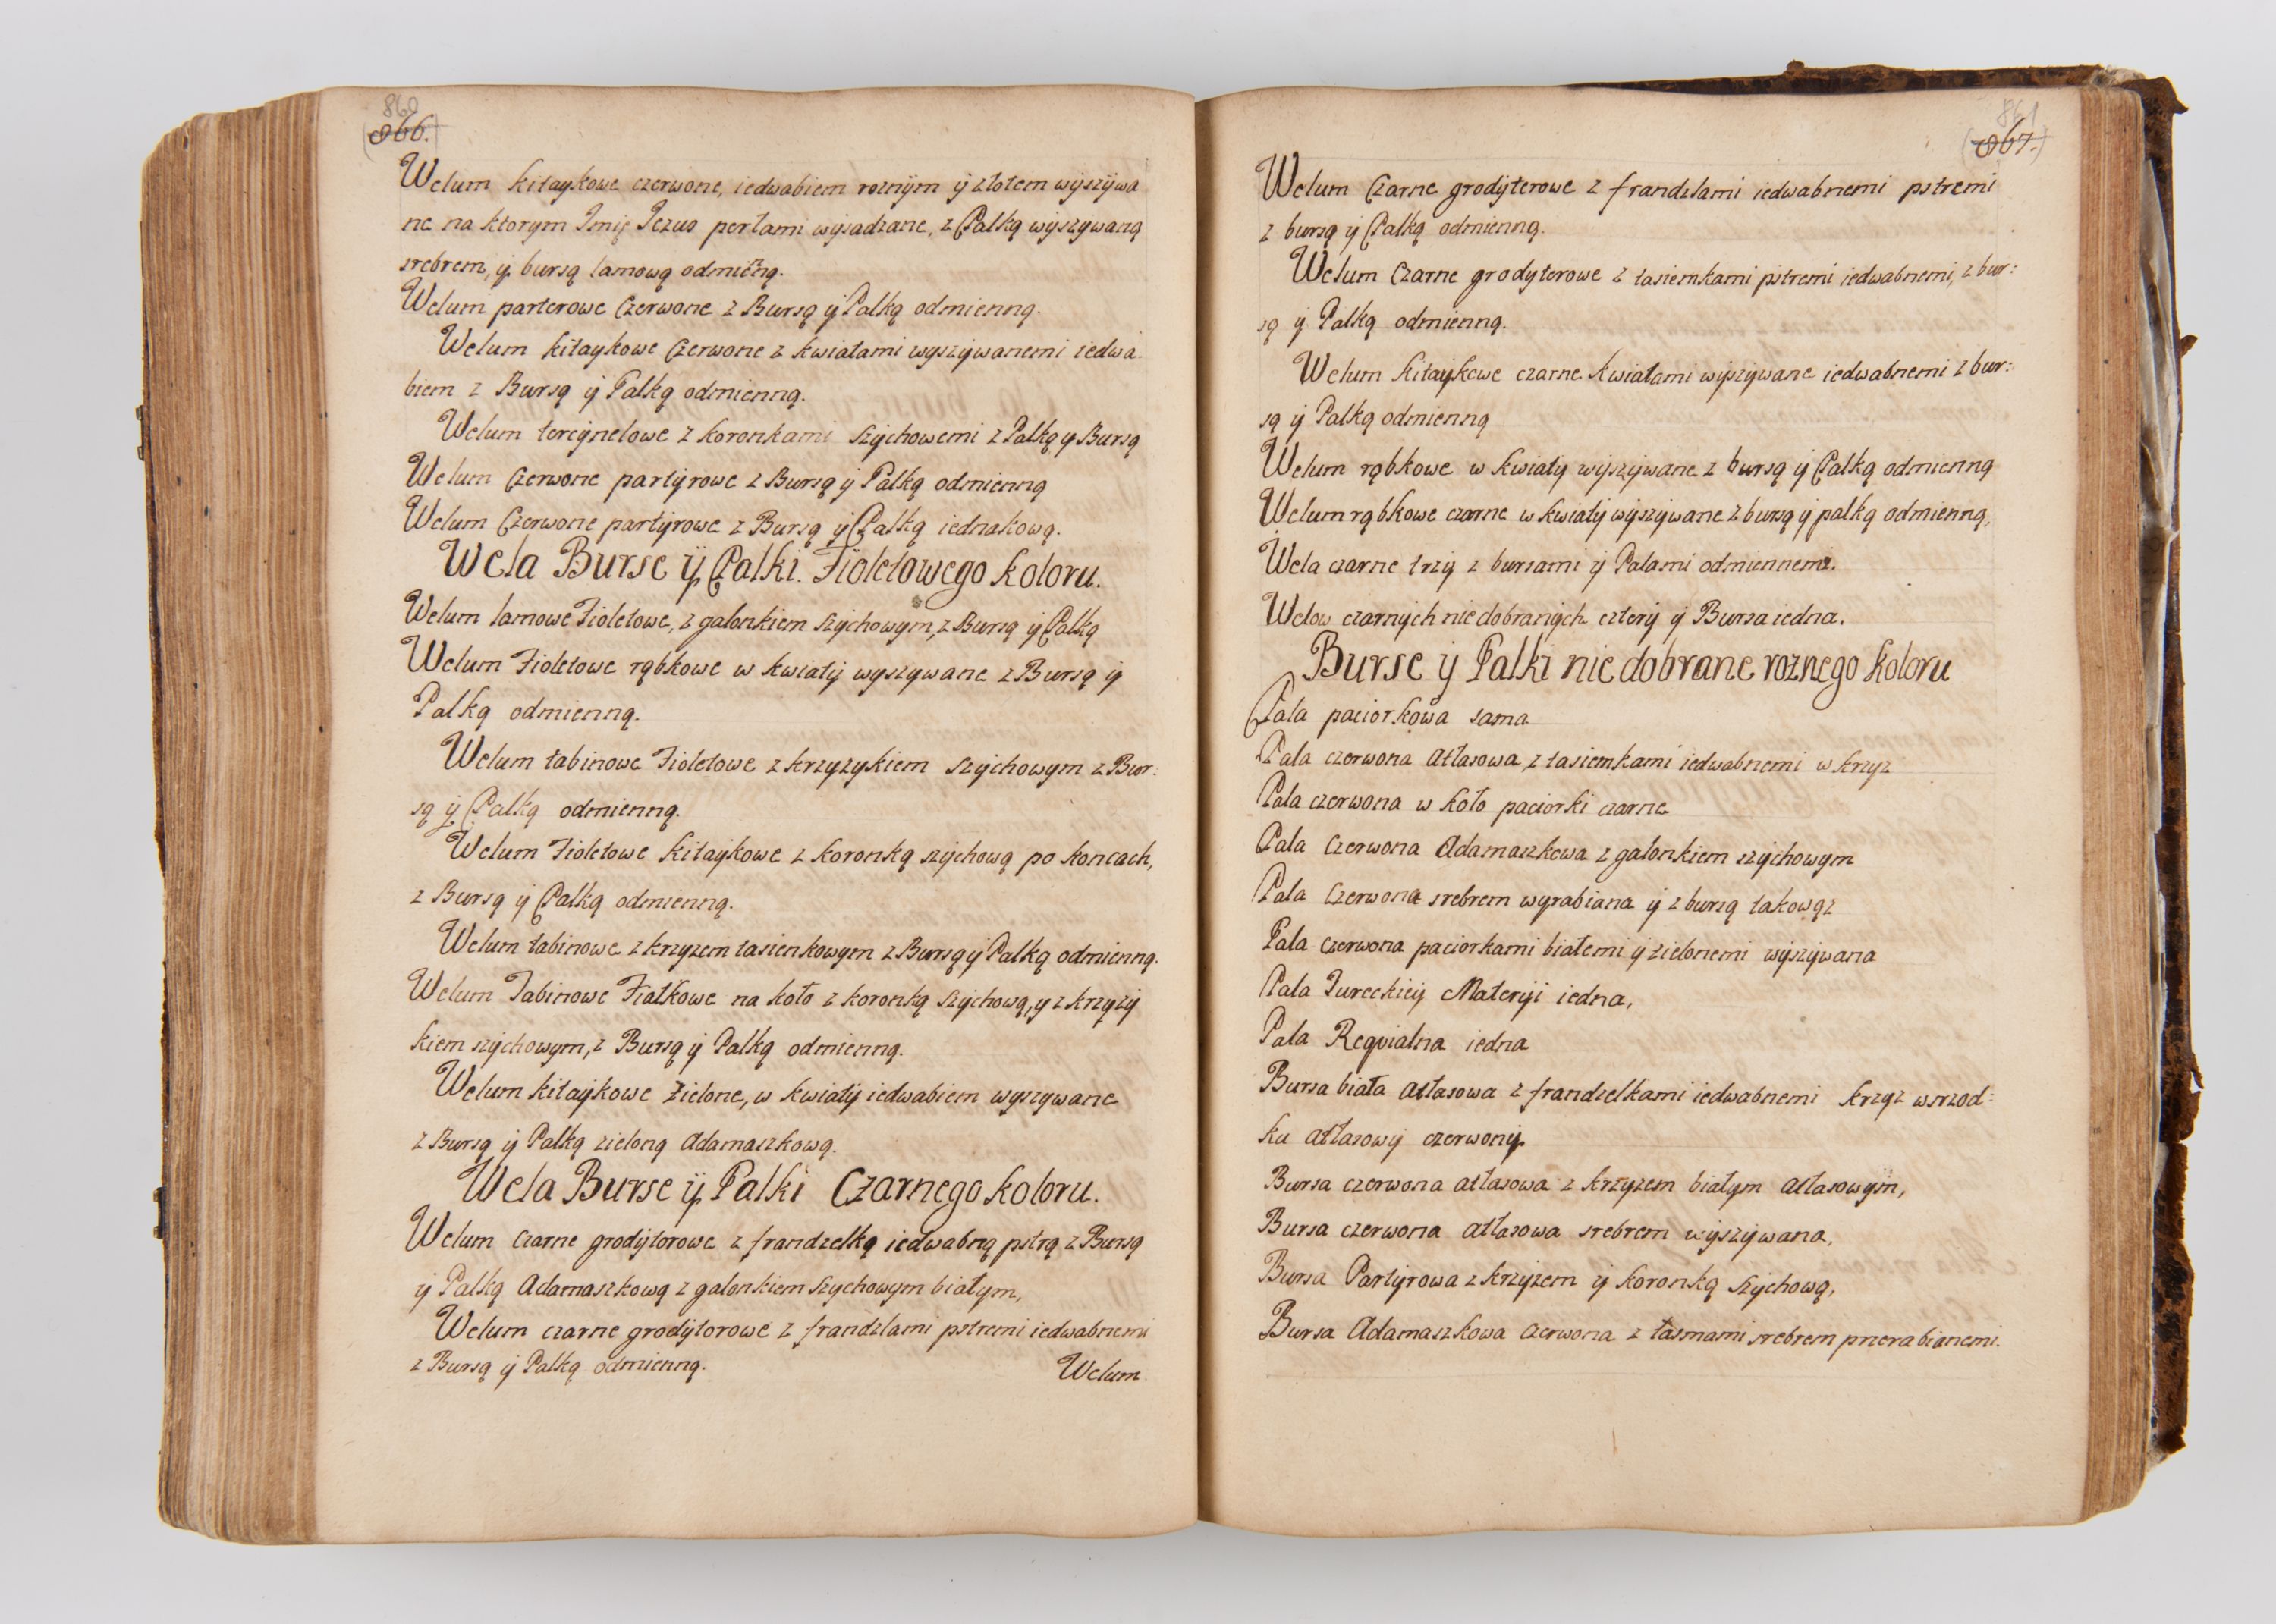 860
866.
Welum kitaykowe czerwone, iedwabiem roznÿm ÿ złotem wÿszÿwa
ne na ktorym Jmię Jezus perłami wÿsadzane, z Palką wÿszywaną
srebrem, ÿ bursą lamową odmieną.
Welum parterowe Czerwone z Bursą ÿ Palką odmienną.
Welum kitaykowe Czerwone z kwiatami wyszÿwanemi iedwa
biem z Bursą ÿ Palką odmienną.
Welum tercÿnelowe z koronkami Szÿchowemi z Palką y Bursą
Welum Czerwone partÿrowe z Bursą ÿ Palką odmienną
Welum Czerwone partÿrowe z Bursą ÿ Palką iednakową.
Wela Burse ÿ Palki. Fioletowego koloru.
Welum lamowe Fioletowe, z galonkiem Szÿchowym, z Bursą ÿ Palką
Welum Fioletowe rąbkowe w kwiatÿ wyszywane z Bursą ÿ
Palką odmienną.
Welum tabinowe Fioletowe z krzyzykiem Szÿchowym z Bur:
są ÿ Palką odmienną.
Welum Fioletowe Kitaykowe z koronką szÿchową po koncach,
z Bursą ÿ Palką odmienną.
Welum tabinowe z krzyzem tasienkowym z Bursą ÿ Palką odmienną.
Welum Tabinowe Fiałkowe na koło z koronką Szÿchową, y z krzÿzÿ
kiem szÿchowym, z Bursą ÿ Palką odmienną.
Welum kitaykowe Zielone, w kwiatÿ iedwabiem wyszywane
z Bursą ÿ Palką zieloną Adamaszkową.
Wela Burse ÿ Palki Czarnego koloru.
Welum Czarne grodÿtorowe z frandzelką iedwabną pstrą z Bursą
ÿ Palką Adamaszkową z galonkiem Szychowym białym,
Welum czarne grodÿtorowe z frandzlami pstremi iedwabnemi
z Bursą ÿ Palką odmienną.
Welum
861
867.
Welum Czarne grodÿterowe z frandzlami iedwabnemi pstremi
z bursą ÿ Palką odmienną.
Welum Czarne grodyterowe z tasiemkami pstremi iedwabnemi, z bur:
są ÿ Palką odmienną.
Welum Kitaÿkowe czarne kwiatami wÿszÿwane iedwabnemi z bur:
są ÿ Palką odmienną
Welum rąbkowe w kwiatÿ wÿszÿwane z bursą ÿ Palką odmienną
Welum rąbkowe czarne w kwiatÿ wÿszÿwane z bursą ÿ palką odmienną,
Wela czarne trzÿ z bursami ÿ Palami odmiennemi.
Welow czarnÿch nie dobranÿch czterÿ ÿ Bursa iedna.
Burse ÿ Palki nie dobrane roznego koloru
Pala paciorkowa sama
Pala czerwona Atłasowa z tasiemkami iedwabnemi w krzyz
Pala czerwona w koło paciorki czarne
Pala Czerwona Adamaszkowa z galonkiem szÿchowym
Pala Czerwona srebrem wyrabiana ÿ z bursą takowąz
Pala czerwona paciorkami białemi ÿ zielonemi wÿszÿwana
Pala Tureckieÿ Materÿi iedna,
Pala Reqvialna iedna
Bursa biała Atłasowa z frandzelkami iedwabnemi krzyz wsrzod:
ku Atłasowÿ czerwonÿ.
Bursa czerwona atłasowa z krzyzem białym Atłasowÿm,
Bursa czerwona atłasowa srebrem wÿszÿwana,
Bursa Partÿrowa z krzÿzem ÿ koronką Szÿchową,
Bursa Adamaszkowa Czerwona z tasmami srebrem przerabianemi.